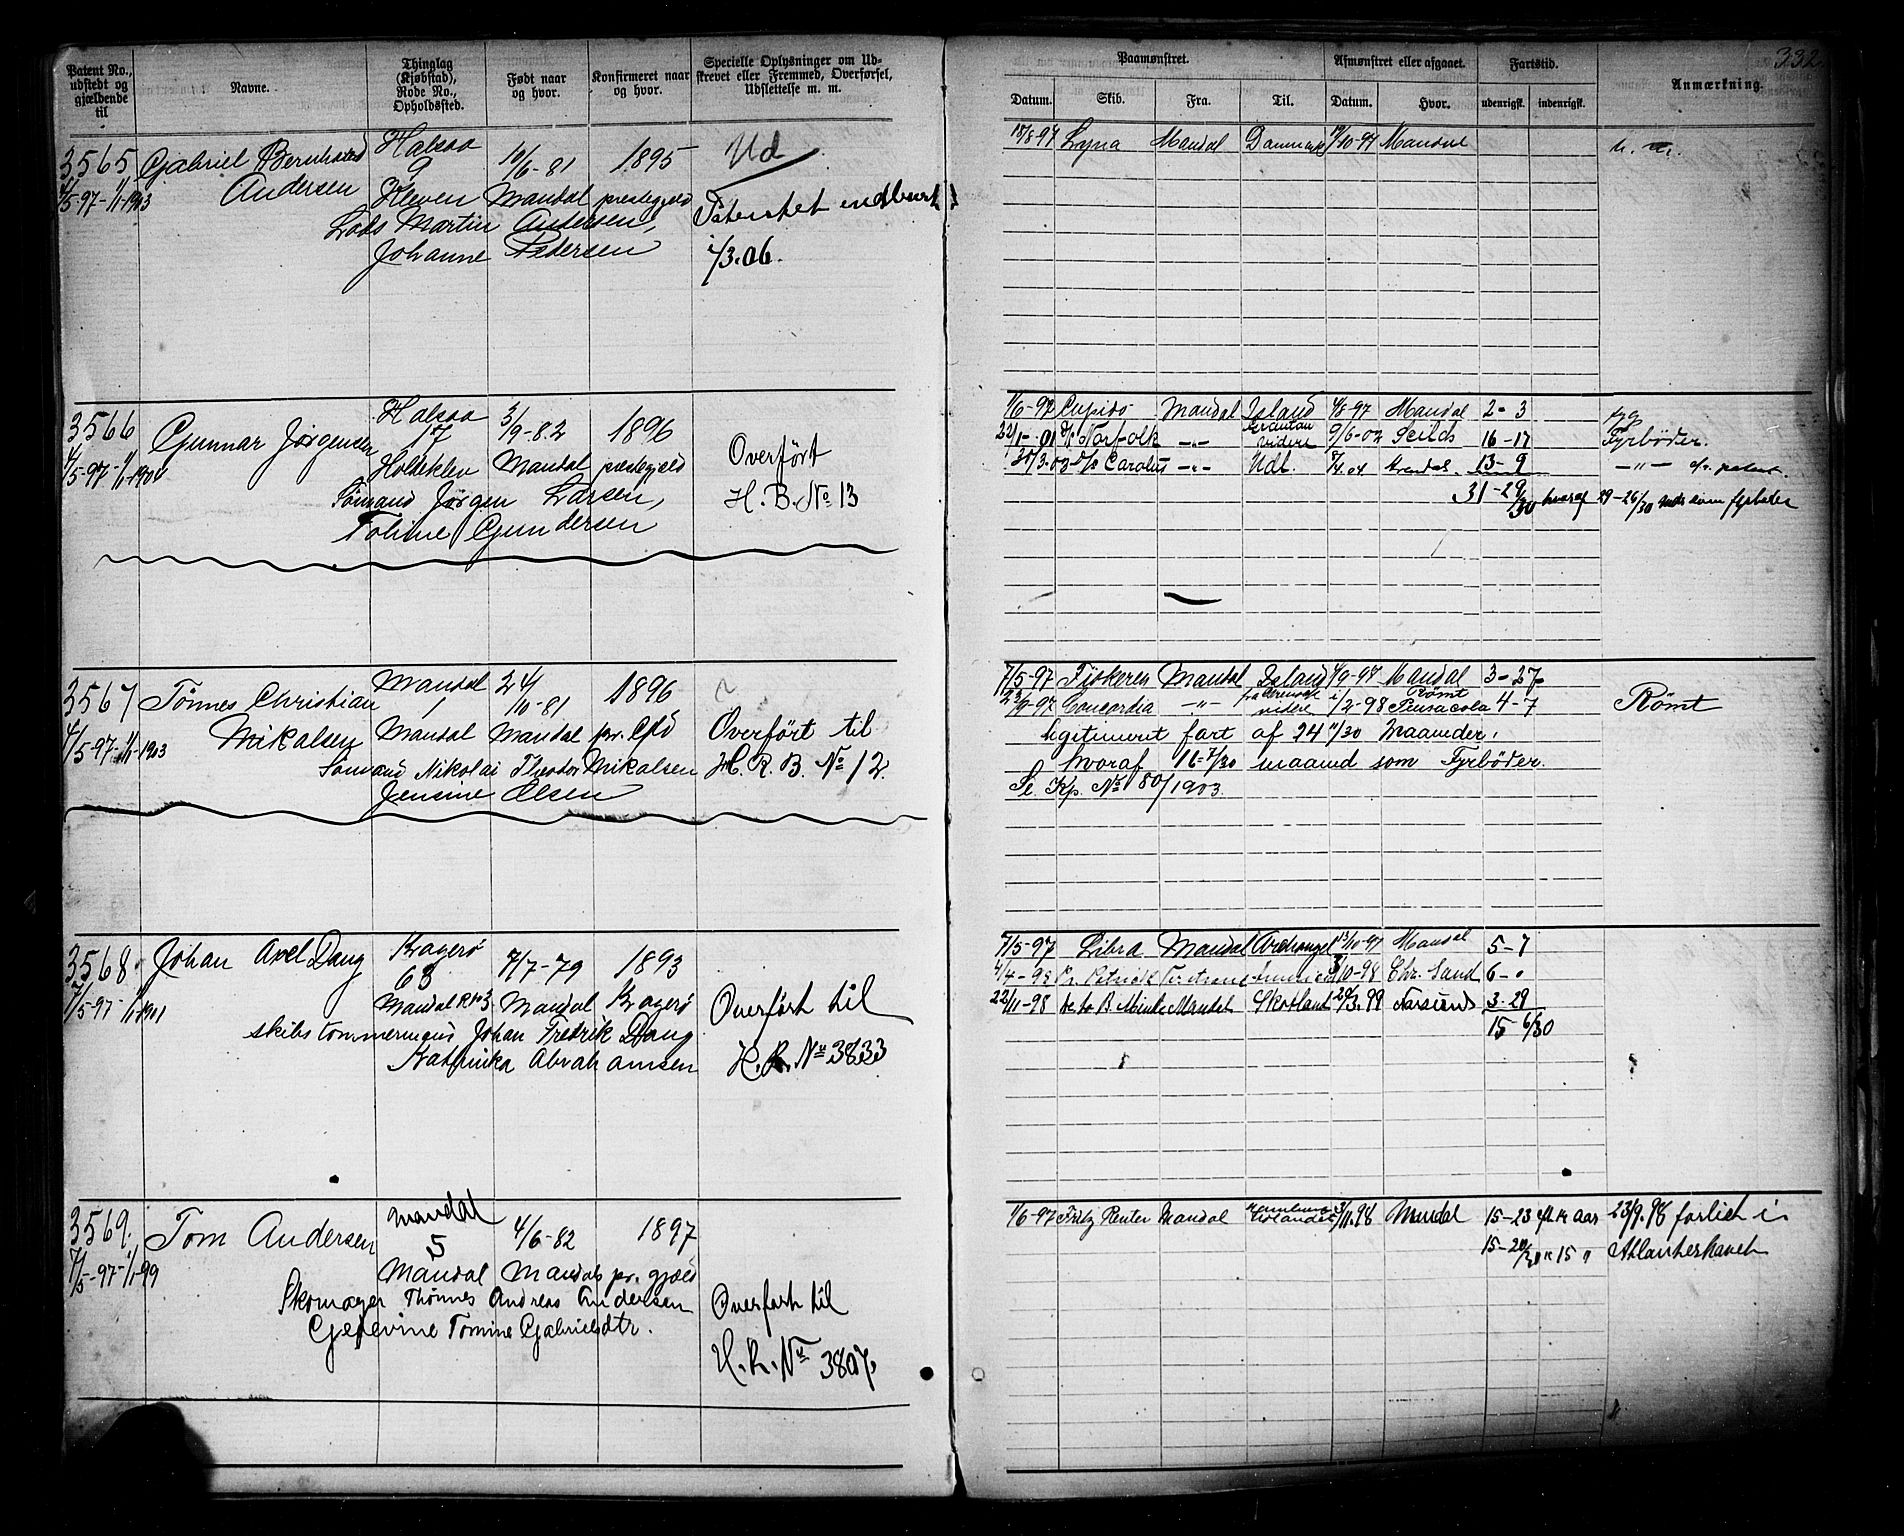 332
Patent No., udstedt og gjældende til
Navne.
Thinglag (Kjøbstad), Rode No., Opholdssted.
Født naar og hvor.
Konfirmeret naar og hvor.
Specielle Oplysninger om Udskrevet eller Fremmed, Overførsel, Udslettelse m. m.
Paamønstret.
Afmønstret eller afgaaet.
Fartstid.
Anmærkning.
Datum. Skib. Fra. Til. Datum. Hvor. udenrigsk. indenrigsk.
3565 Gabriel Bernhard Halsaa 10/6-81 1895 Ud
Andersen 9
4/5-97-1/1-1903 Kleven Mandal prestegjeld Patentet indleveret
Lods Martin Andersen,
Johanne Pedersen 1/3.06.
18/8-97 Lyna Mandal Danmark 19/10-97 Mandal
3566 Gunnar Jørgensen Halsaa 3/9-82 1896
17 Overført
4/5-97-1/1-1904 Holdeklev Mandal prestegjeld
Sømand Jørgen Larsen, H. B. No 13
Toline Gundersen
1/6-97 Cupido Mandal Island 4/8-97 Mandal 2-3
22/1-01 D/S Norfolk -"- videre 9/6-02 Seilds 16-17 Fyrbøder.
30/3.03 D/S Carolus -"- Udl. Arendal 13-9 -"-
31-29/30 hvoraf 29-26/30 som fyrbøder
3567 Tønnes Christian Mandal 24/10-81 1896
1
4/5-97-1/1-1903 Mikalsen Mandal Mandal pr. gjd Overført til
Sømand Nikolai Theodor Mikalsen H. R. B. No 12.
Jensine Olsen
7/5-97 Fiskeren Mandal Island 4/9-97 Mandal 3-27
23/9-97 Concordia -"- videre 1/2-98 Rømt Pensacola 4-7 Rømt
legitimeret fart af 24 11/30 Maaneder,
hvoraf 16-7/30 maaned som Fyrbøder.
Se Kp. No 80/1903.
3568 Johan Axel Dang Kragerø 7/7-79 1893
63
7/5-97-1/1-1901 Mandal R No 3 Mandal Kragerø Overført til
skibstømmermand Johan Fredrik Dang
Kathrinka Abrahamsen H. R. No 3833
7/5-97 Libra Mandal Archangel 13/10-97 Mandal 5-7
4/4-98 Pr. Patrick 3/10-98 Chr. Sand 6-"
22/11-98 Mandal Skotland 20/3.99 Farsund 3-29
15 6/30
3569. Tom Andersen Mandal 4/6-82 1897
5
7/5-97-1/1-99 Mandal Mandals pr. gjæld
Skomager Thønnes Andreas Andersen Overført til
Gesevine Tomine Gabrielsdtr.
H. R. No 3807.
1/6-97 Fritz Reuter Mandal 3/11.98 Mandal 15-23 23/9.98 forlist i
15-20/30 " 15 " Atlanterhavet